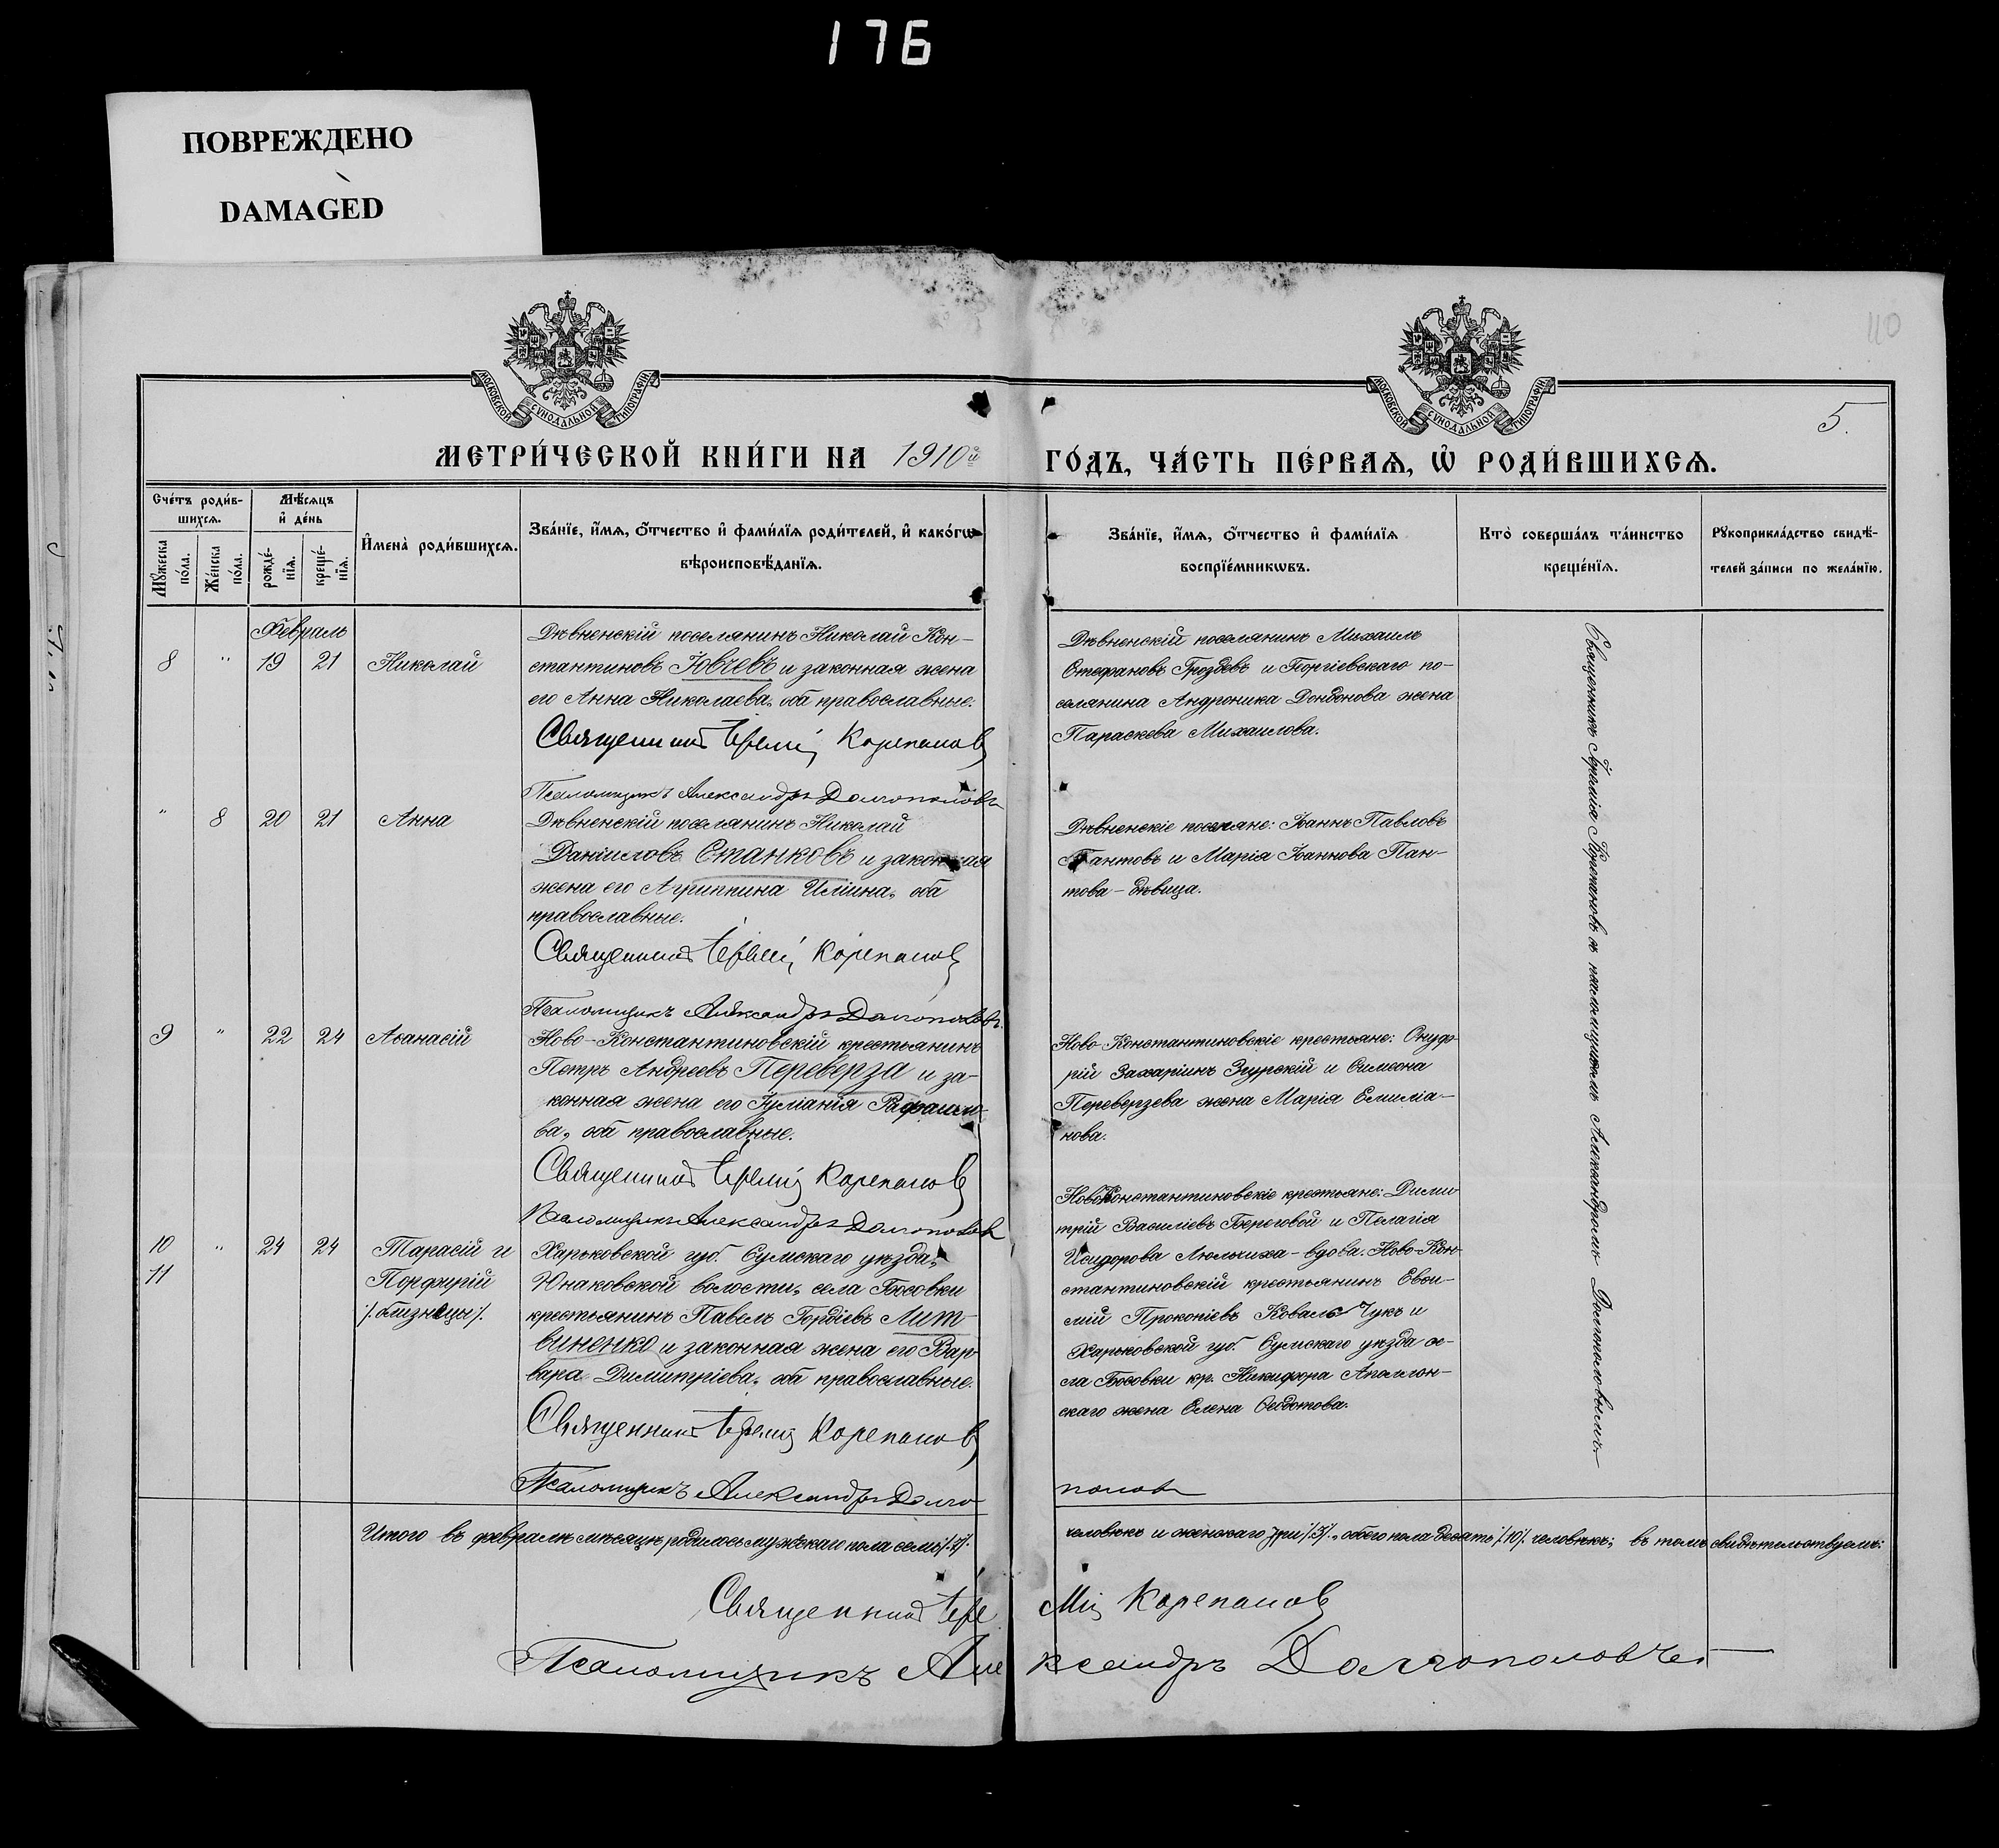 176
ПОВРЕЖДЕНО
DAMAGED
110
МОСКОВСКОЙ СУНОДАЛЬНОЙ ТИПОГРАФІИ
МОСКОВСКОЙ СУНОДАЛЬНОЙ ТИПОГРАФІИ
5.
МЕТРИ́ЧЕСКОЙ КНИ́ГИ НА 1910й ГО́ДЪ, ЧА́СТЬ ПЕ́РВАѦ, Ѡ҆ РОДИ́ВШИХСѦ.
Сче́тъ роди́в-
шихсѧ.
Мꙋ́жеска по́ла.
Же́нска по́ла.
Мѣ́сѧцъ
и҆ де́нь
рожде́-
нїѧ.
креще́-
нїѧ.
И҆мена̀ роди́вшихсѧ.
Зва́нїе, и҆́мѧ, ѻ҆́тчество и҆ фами́лїѧ роди́телей, и҆ како́гѡ
вѣроисповѣ́данїѧ.
Зва́нїе, и҆́мѧ, ѻ҆́тчество и҆ фами́лїѧ
воспрїе́мникѡвъ.
Кто̀ соверша́лъ та́инство
креще́нїѧ.
Рꙋкоприкла́дство свидѣ́-
телей за́писи по жела́нїю.
Февраль
8 " 19 21 Николай
Дѣвненскій поселянинъ Николай Кон-
стантиновъ Ювчевъ и законная жена
его Анна Николаева, оба православные.
Священникъ Іеремія Корепановъ
Псаломщикъ Александръ Долгополовъ
Дѣвненскій поселянинъ Михаилъ
Стефановъ Гроздевъ и Георгіевскаго по-
селянина Андроника Дондонова жена
Параскева Михаилова.
" 8 20 21 Анна
Дѣвненскій поселянинъ Николай
Даніиловъ Станковъ и законная
жена его Агриппина Иліина, оба
православные.
Священникъ Іеремія Корепановъ
Псаломщикъ Александръ Долгополовъ.
Дѣвненскіе поселяне: Іоаннъ Павловъ
Пантовъ и Марія Іоаннова Пан-
това - дѣвица.
9 " 22 24 Аѳанасій
Ново-Константиновскій крестьянинъ
Петръ Андреевъ Переверза и за-
конная жена его Іуліанія Рафаило-
ва, оба православные.
Священникъ Іеремія Корепановъ
Псаломщикъ Александръ Долгополов
Ново-Константиновскіе крестьяне: Онуф-
рій Захаріинъ Згурскій и Симеона
Переверзева жена Марія Емиліа-
нова.
10 " 24 24 Тарасій и
11 Порфирій
/. близнецы /.
Харьковской губ. Сумскаго уѣзда,
Юнаковской волости, села Басовки
крестьянинъ Павелъ Гордіевъ Лит-
виненко и законная жена его Вар-
вара Димитріева, оба православные.
Священникъ Іеремія Корепановъ
Псаломщикъ Александръ Долгополовъ
Ново-Константиновскіе крестьяне: Дими-
трій Василіевъ Береговой и Пелагія
Исидорова Люльчиха - вдова. Ново-Кон-
стантиновскій крестьянинъ Евѳи-
мій Прокопіевъ Ковальчукъ и
Харьковской губ. Сумскаго уѣзда се-
ла Басовки кр. Никифора Аполлон-
скаго жена Елена Ѳедотова.
Священникъ Іеремія Корепановъ съ псаломщикомъ Александромъ Долгополовымъ.
Итого въ февралѣ мѣсяцѣ родилось мужскаго пола семь /.7/. человѣкъ и женскаго три /.3/., обоего пола десять /.10/. человѣкъ; въ томъ свидѣтельствуемъ:
Священникъ Іеремія Корепановъ
Псаломщикъ Александръ Долгополовъ.